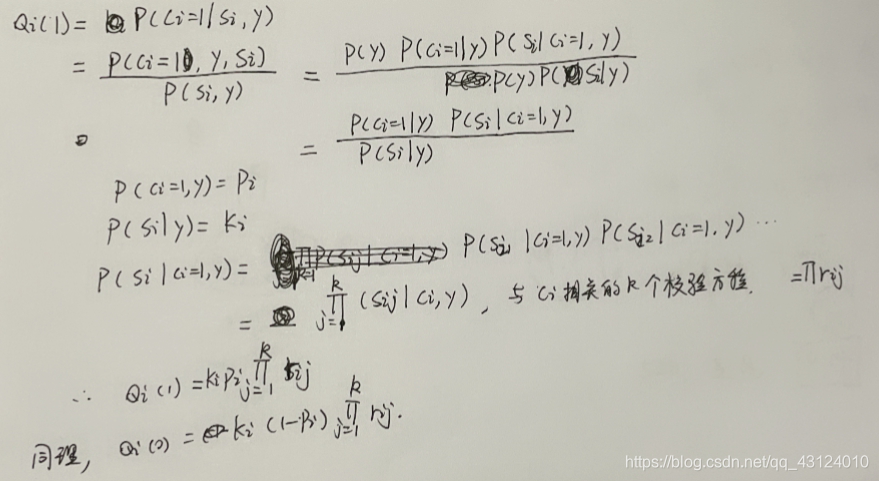 Qi(1) = P(Ci=1|Si,y)
= P(Ci=1, y, Si) / P(Si, y) = P(y) P(Ci=1|y) P(Si|Ci=1, y) / P(y) P(Si|y)
= P(Ci=1|y) P(Si|Ci=1, y) / P(Si|y)
P(Ci=1, y) = Pi
P(Si|y) = Ki
P(Si|Ci=1, y) = P(Sj1|Ci=1, y) P(Sj2|Ci=1, y) ⋯
= ∏_{j=1}^{k} (Sij|Ci, y), 与Ci相关的k个校验方程. = ∏rij
∴ Qi(1) = KiPi ∏_{j=1}^{k} ij
同理, Qi(0) = Ki (1-Pi) ∏_{j=1}^{k} rij.
https://blog.csdn.net/qq_43124010